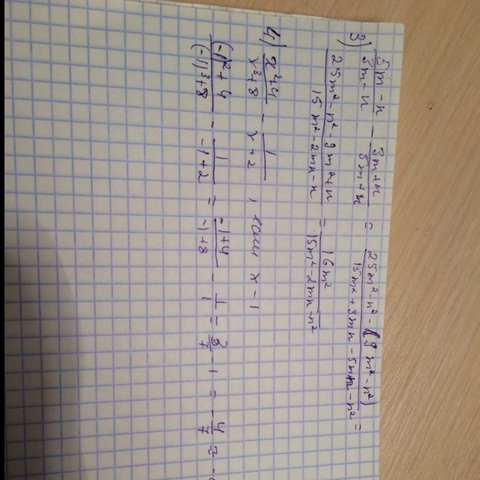 3) (5m-n)/(3m-n) - (3m+n)/(5m+n) = (25m²-n²-(9m²-n²))/(15m²+3mn-5mn-n²) =
(25m²-n²-9m²+n)/(15m²-2mn-n) = 16m²/(15m²-2mn-n²)
4) (x²+4)/(x³+8) - 1/(x+2) , если x-1
((-1)²+4)/((-1)³+8) - 1/(-1+2) = (-1+4)/(-1+8) - 1/1 = 3/7 - 1 = -4/7 =